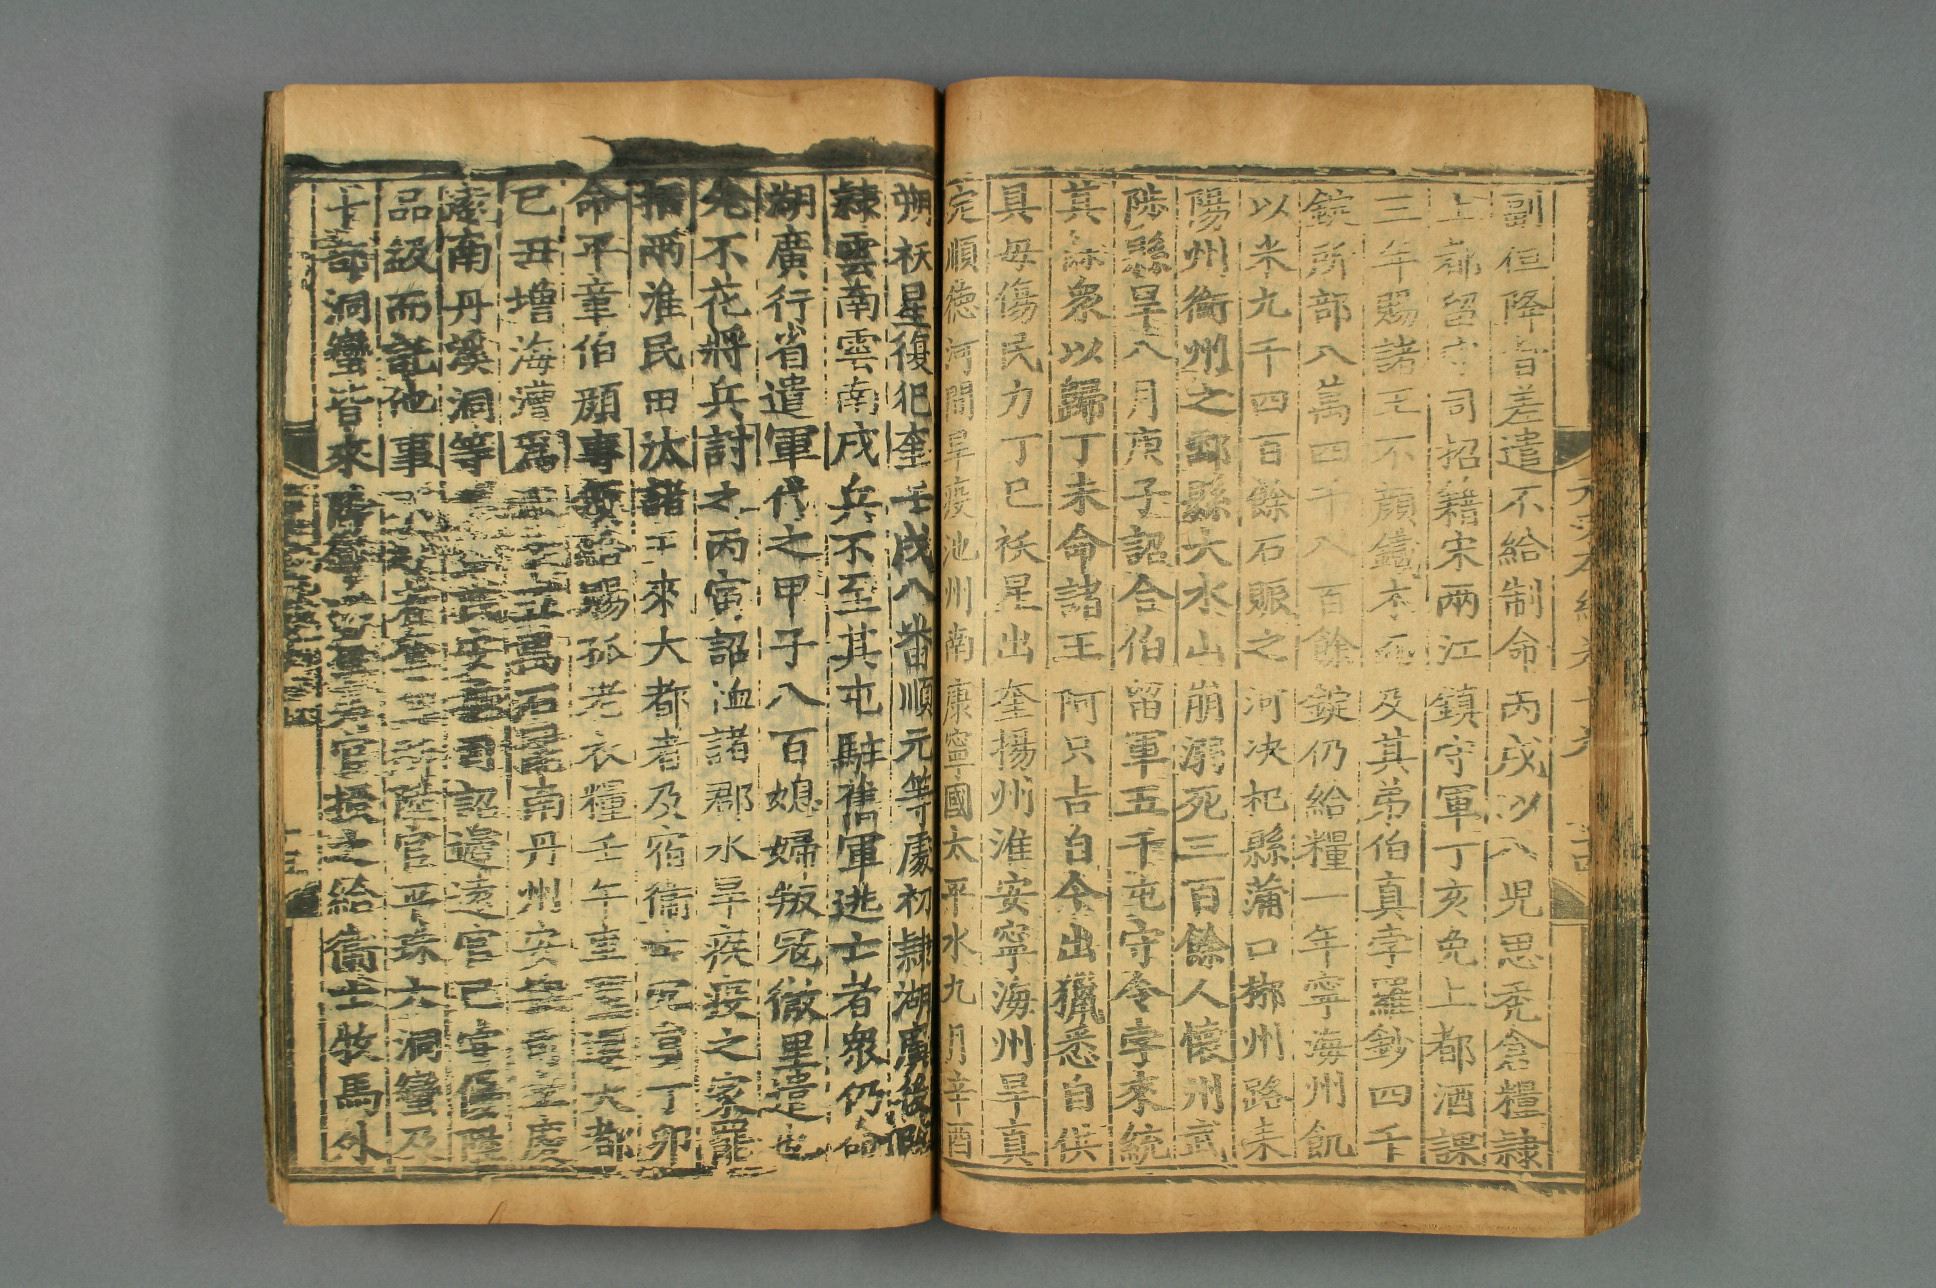 元史本紀卷十九 十四
副但降旨差遣不給制命丙戌以八児思禿倉糧隷
上都留守司招籍宋兩江鎮守軍丁亥免上都酒課
三年賜諸王不顔鐵木而及其弟伯真孛羅鈔四千
錠所部八萬四千八百餘錠仍給糧一年寧海州飢
以米九千四百餘石賑之河决杞縣蒲口郴州路耒
陽州衡州之酃縣大水山崩溺死三百餘人懷州武
陟縣旱八月庚子詔合伯留軍五千屯守令孛來統
其餘衆以歸丁未命諸王阿只吉自今出獵悉自供
具毋傷民力丁巳袄星出奎揚州淮安寧海州旱真
定順德河間旱疫池州南康寧國太平水九月辛酉
朔袄星復犯奎壬戌八番順元等處初隷湖廣後改
隷雲南雲南戍兵不至其屯駐舊軍逃亡者衆仍命
湖廣行省遣軍代之甲子八百媳婦叛寇徹里遣也
先不花將兵討之丙寅詔恤諸郡水旱疾疫之家罷
括兩淮民田汰諸王來大都者及宿衛士冗員丁卯
命平章伯顔專領給賜孤老衣糧壬午 大都
已丑增海漕爲 五萬石罷南丹州安撫司立慶
遠南丹溪洞等處軍民安撫司詔遣遠官已嘗優陞
品級而託他事不起者奪其所陞官平珠六洞蠻及
十部洞蠻皆來降命以蠻夷官授之給衛士牧馬外
十五